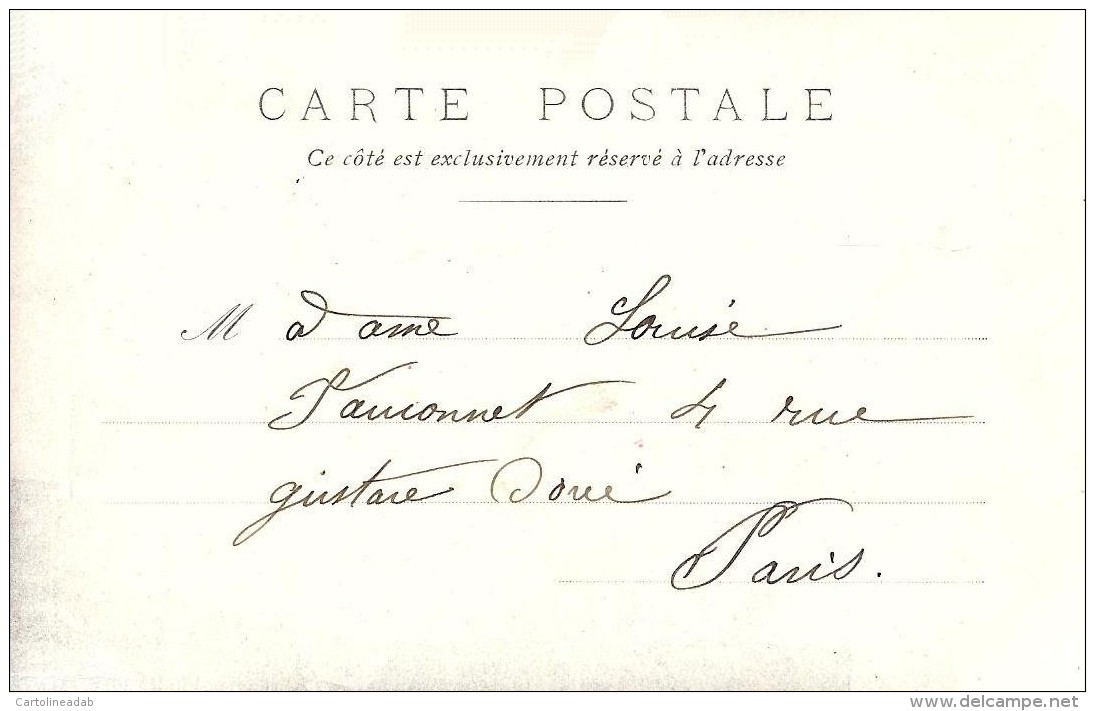 CARTE POSTALE
Ce côté est exclusivement réservé à l'adresse
Madame Louise
Fauconnet 4 rue
gustave Doré
Paris.
Cartolineadab
delcampe.net